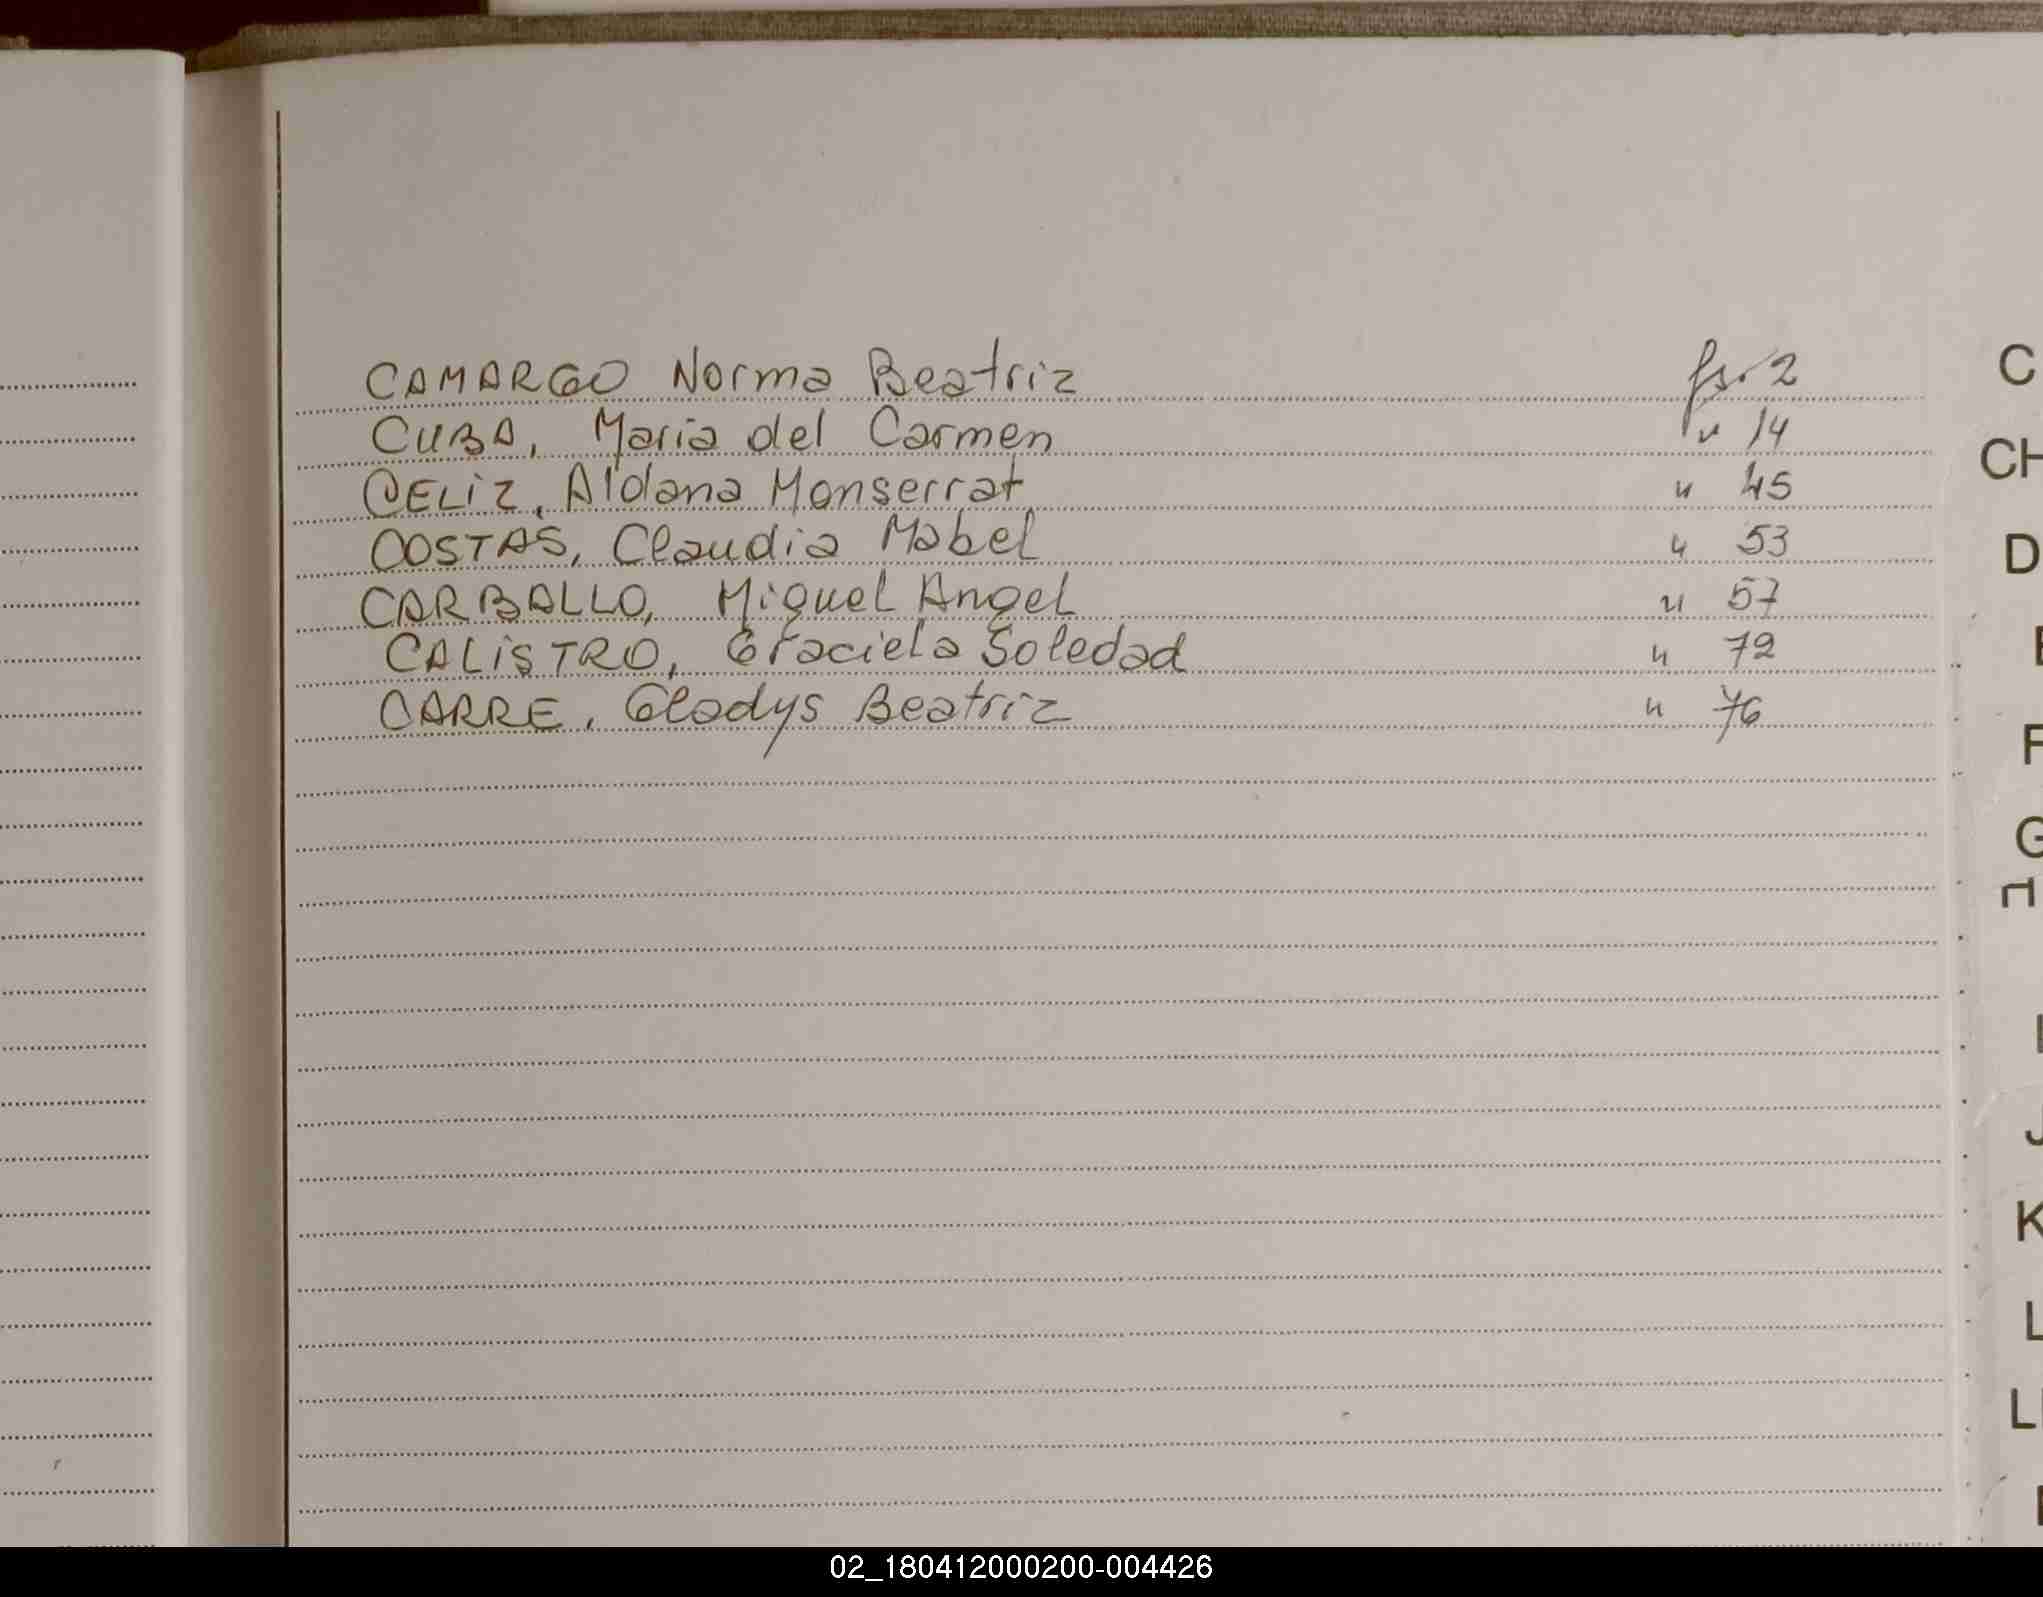 CAMARGO Norma Beatriz fs. 2
CUBA, Maria del Carmen " 14
CELIZ, Aldana Monserrat " 45
COSTAS, Claudia Mabel " 53
CARBALLO, Miguel Angel " 57
CALISTRO, Graciela Soledad " 72
CARRE, Gladys Beatriz " 76
C
CH
D
E
F
G
H
I
J
K
L
L
02_180412000200-004426